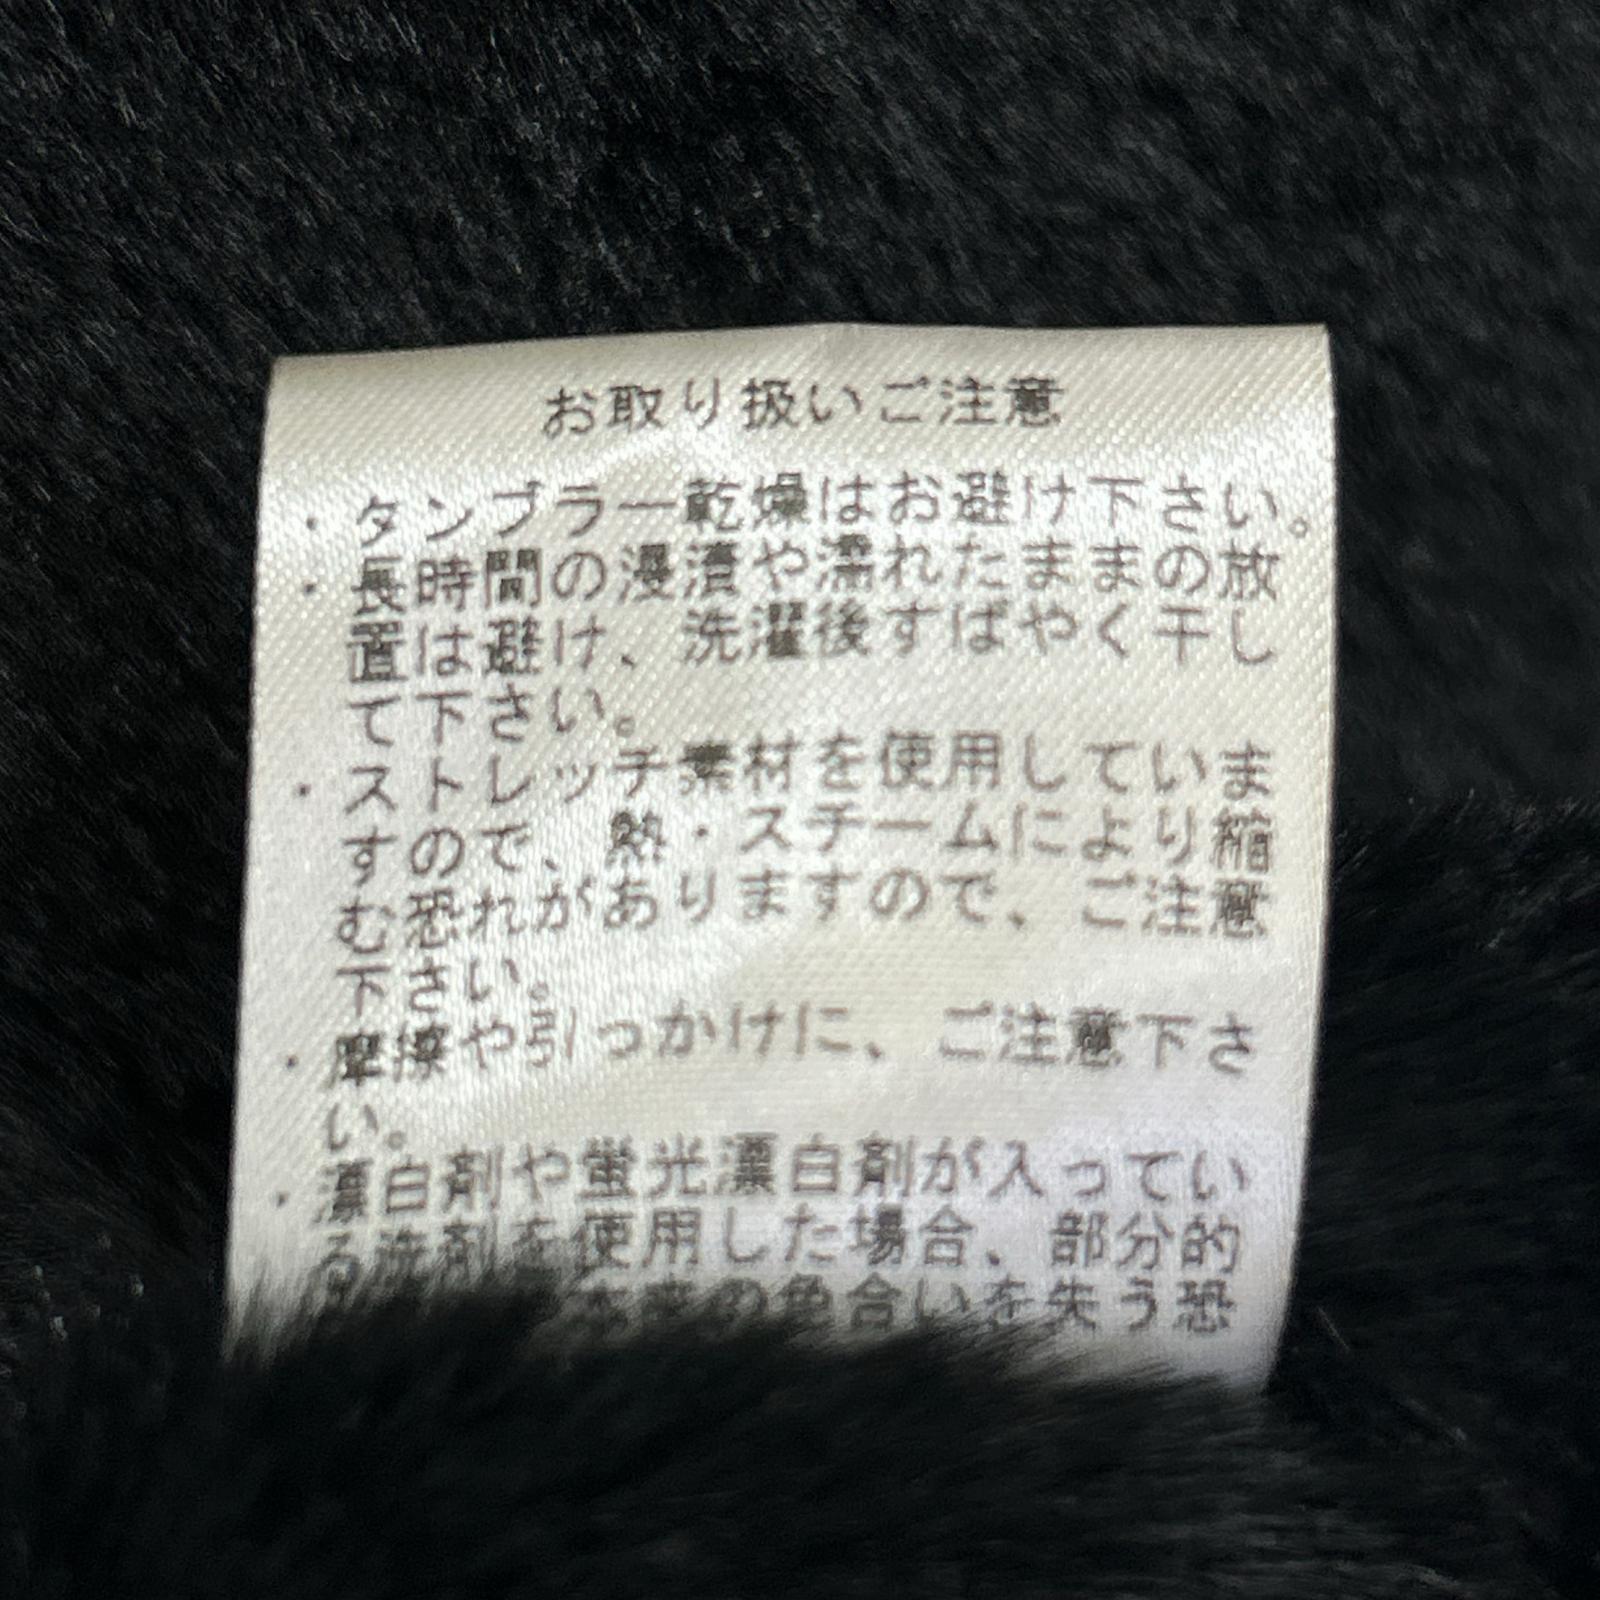 お取り扱いご注意
・タンブラー乾燥はお避け下さい。
・長時間の浸漬や濡れたままの放
置は避け、洗濯後すばやく干し
て下さい。
・ストレッチ素材を使用していま
すので、熱・スチームにより縮
む恐れがありますので、ご注意
下さい。
・摩擦や引っかけに、ご注意下さ
い。
・漂白剤や蛍光漂白剤が入ってい
る洗剤を使用した場合、部分的
本来の色合いを失う恐